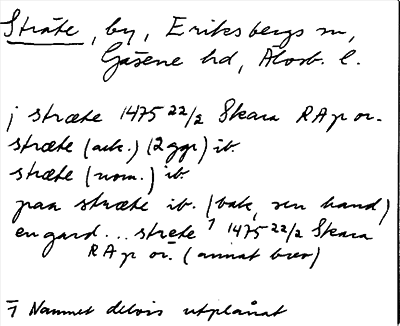 Stráte, by, Eriksbergs sn,
Gäsene hd, Älvsb. l.
j stræte 1475 22/2 Skara RAp or.
stræte (ack.) (2 ggr) ib.
stræte (nom.) ib
paa stræte ib. (bak, sen hand)
en gard... stræte 1) 1475 22/2 Skara
RAp or. (annat brev)
1) Namnet delvis utplånat